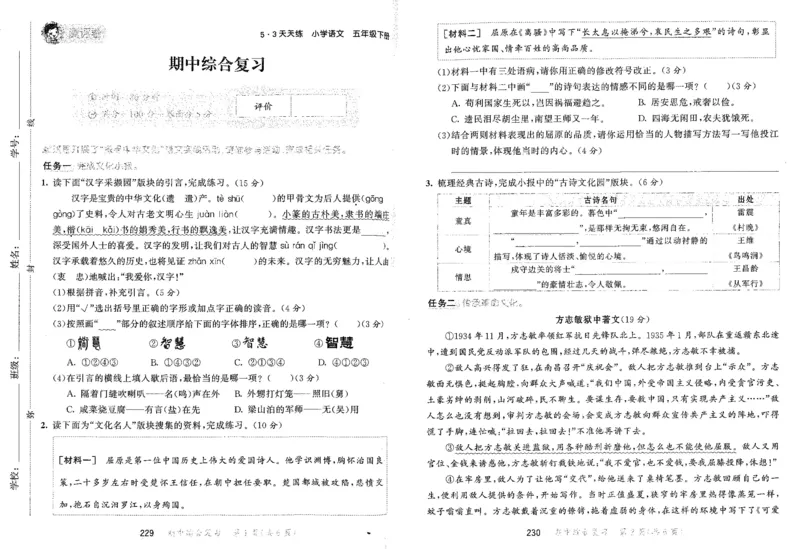 5·3天天练 小学语文 五年级下册
期中综合复习
评价
线
封
弥
学号：
姓名：
班级：
学校：
任务一 完成文化小报。
1. 读下面“汉字采撷园”版块的引言,完成练习。(15分)
汉字是宝贵的中华文化(遗 遣)产。tè shū( )的甲骨文为后人提供(gōng
gòng)了史料,令人对古老文明心生 juàn liàn( )。小篆的古朴美,隶书的端庄
美,楷(kāi kǎi)书的娟秀美,行书的飘逸美,让汉字充满情趣。汉字书法更是
深受国外人士的喜爱。汉字的发明,让我们对古人的智慧 sù rán qǐ jìng( )。
汉字承载着悠久的历史,也将见证 zhǎn xīn( )的未来。汉字的无穷魅力,让人由
(衷 忠)地喊出:“我爱你,汉字!”
(1)根据拼音,补充引言。(5分)
(2)用“√”选出括号里正确的字形或加点字正确的读音。(4分)
(3)按照画“ ”部分的叙述顺序给下面的字体排序,正确的是哪一项?( )(3分)
①智慧 ②智慧 ③智慧 ④智慧
A. ①②④③ B. ①④③② C. ②①③④ D. ④①②③
(4)在引言的横线上填入歇后语,最恰当的是哪一项?( )(3分)
A. 隔着门缝吹喇叭——名(鸣)声在外 B. 外甥打灯笼——照旧(舅)
C. 咸菜烧豆腐——有言(盐)在先 D. 梁山泊的军师——无(吴)用
2. 读下面为“文化名人”版块搜集的资料,完成练习。(10分)
[材料一] 屈原是第一位中国历史上伟大的爱国诗人。他学识渊博,胸怀治国良
策,二十多岁左右时受楚怀王信任,在朝中担任要职。楚国都城被攻陷,悲愤交
加,抱石自沉汨罗江,以身殉国。
229 期中综合复习
[材料二] 屈原在《离骚》中写下“长太息以掩涕兮,哀民生之多艰”的诗句,彰显
出他心忧家国、情牵百姓的高尚品质。
(1)材料一中有三处语病,请你用正确的修改符号改正。(3分)
(2)下面与材料二中画“ ”的诗句表达的情感不同的是哪一项?( )(3分)
A. 苟利国家生死以,岂因祸福避趋之。 B. 居安思危,戒奢以俭。
C. 遗民泪尽胡尘里,南望王师又一年。 D. 四海无闲田,农夫犹饿死。
(3)结合两则材料表现出的屈原的品质,请你运用恰当的人物描写方法写一写他投江
时的情景,体现他当时的内心。(4分)
3. 梳理经典古诗,完成小报中的“古诗文化园”版块。(6分)
主题 古诗名句 出处
童真 童年是丰富多彩的。暮色中“ , 雷震
”,是那样无拘无束,悠闲自在。 《村晚》
心境 “ , ”通过以动衬静的 王维
描写,体现了诗人恬淡、愉悦的心境。 《鸟鸣涧》
情思 戍守边关的将士“ , 王昌龄
”的豪情壮志,令人敬佩。 《从军行》
任务二 传承革命文化。
方志敏狱中著文(19分)
①1934年11月,方志敏率领红军抗日先锋队北上。1935年1月,部队在重返赣东北途
中,遭到国民党反动派军队的包围,经过几天的战斗,弹尽粮绝,方志敏不幸被捕。
②敌人高兴得发了狂,在南昌召开“庆祝会”。敌人把方志敏推到台上“示众”。方志
敏面无惧色,挺起胸膛,向群众大声喊道:“我们中国,外受帝国主义侵略,内受贪官污吏、
土豪劣绅的剥削,山河破碎,民不聊生。要谋生存,要救中国,只有实现共产主义……”敌
人怎么也没有想到,审判方志敏的会场,会变成方志敏向群众宣传共产主义的阵地,吓得
慌了手脚,连忙喊:“拉回去,拉回去!”不准他再讲下去。
③敌人把方志敏关进监狱,用各种酷刑折磨他,但怎么也不能使他屈服。敌人又用
官位、金钱来诱惑他,方志敏斩钉截铁地说:“我不爱官,也不爱钱,要我屈膝投降,休想!”
④在牢房里,敌人为了让他写“交代”,给他送来了桌椅笔墨。方志敏回顾自己的一
生,便利用敌人提供的条件,开始写作。当时正值盛夏,狭窄的牢房里热得像蒸笼一样,
蚊子嗡嗡直叫。方志敏戴着沉重的镣铐,拖着虚弱的身体,在这样的环境中写下了《可爱
230 期中综合复习